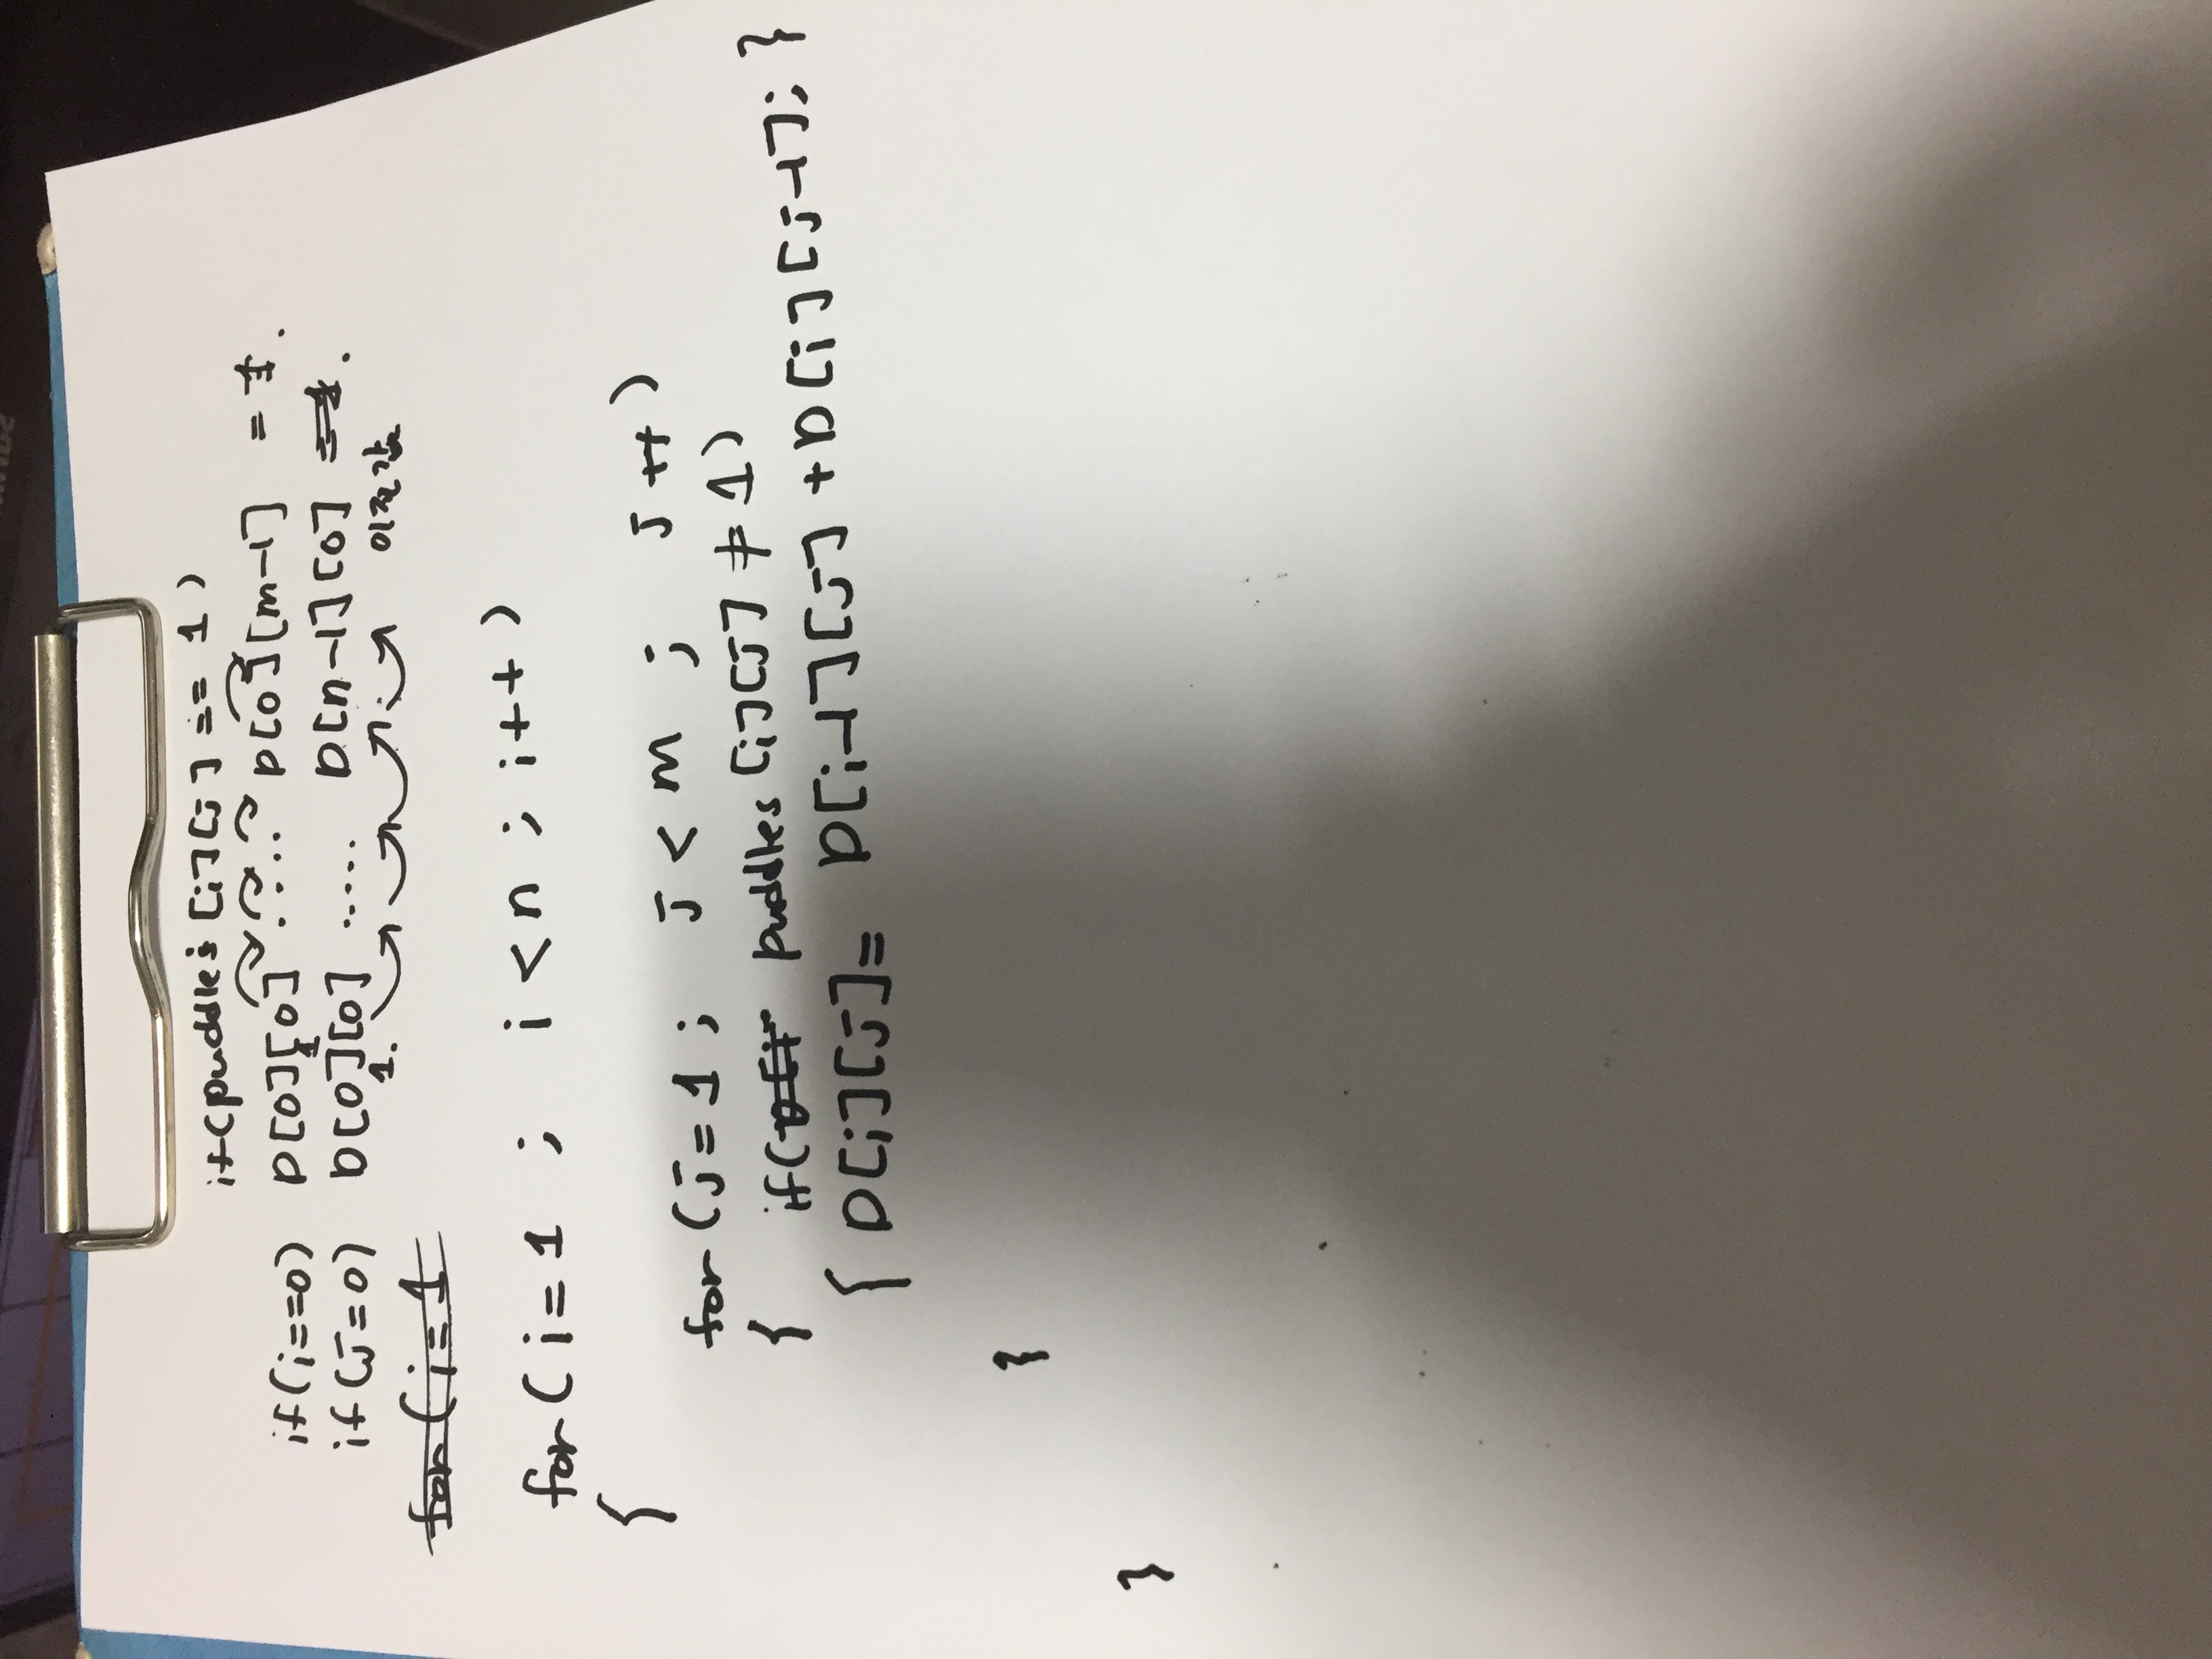 if(puddles[i][j] == 1)
if(i==0) D[0][0] ..... D[0][m-1] = 1.
1
if(j=0) D[0][0] ..... D[n-1][0] = 1.
1. 이전값
for(i=1
for(i=1 ; i<n ; i++)
{
for(j=1; j<m ; j++)
{ if( puddles[i][j] ≠ 1)
{ D[i][j]= D[i-1][j] +D[i][j-1]; }
}
}